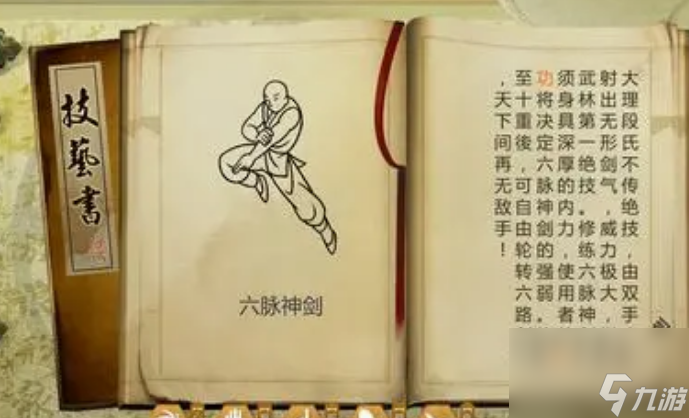 技藝書
六脉神剑
大理段氏不传绝技，由双手
射出无形剑气，威力极大，
武林第一绝技。修练六脉神
须身具深厚的内力，使用者
功将决定六脉神剑的强弱。
至十重後，可自由轮转六路
，天下间再无敌手！
九游